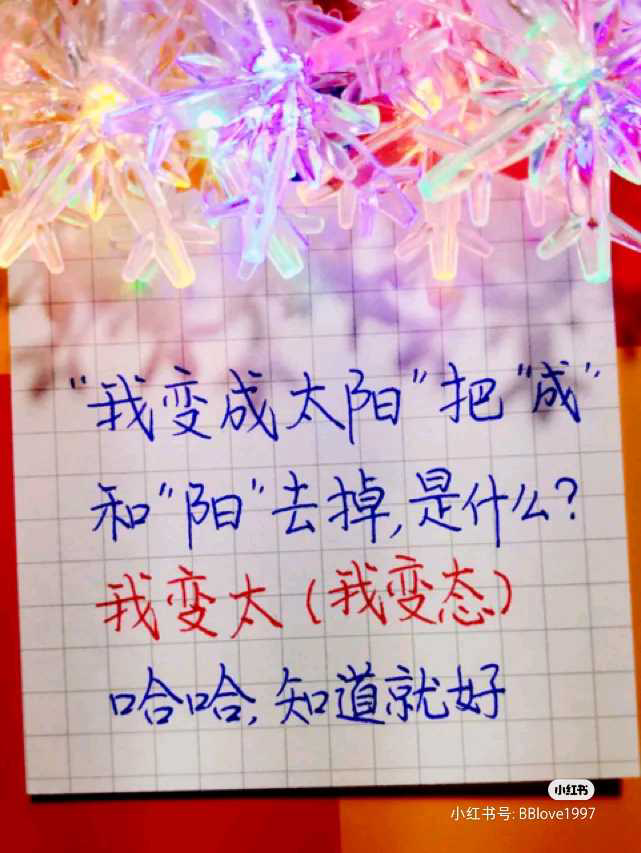 "我变成太阳"把"成"
和"阳"去掉,是什么?
我变太(我变态)
哈哈,知道就好
小红书
小红书号: BBlove1997